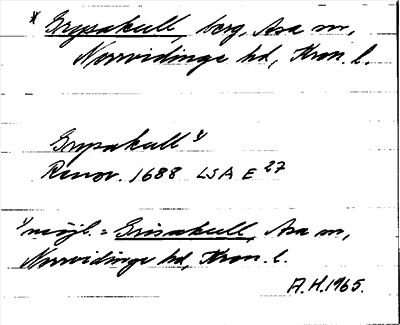 * Grysakull, berg, Asa sn,
Norrvidinge hd, Kron. l.
Grysakull 1)
Renov. 1688 LSA E 27
1) möjl. = Grisakull, Asa sn,
Norrvidinge hd, Kron. l.
A.H. 1965.